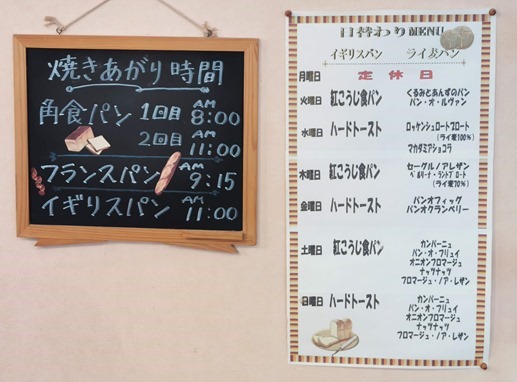 焼きあがり時間
角食パン 1回目 AM 8:00
2回目 AM 11:00
フランスパン AM 9:15
イギリスパン AM 11:00
日替わりMENU
イギリスパン ライ麦パン
月曜日 定休日
火曜日 紅こうじ食パン くるみとあんずのパン
パン・オ・ルヴァン
水曜日 ハードトースト ロッケンシュロートブロート
(ライ麦100%)
マカダミアショコラ
木曜日 紅こうじ食パン セーグル/アレザン
ベルリーナ・ラントブロート
(ライ麦70%)
金曜日 ハードトースト パンオフィッグ
パンオクランベリー
土曜日 紅こうじ食パン カンパーニュ
パン・オ・フリュイ
オニオンフロマージュ
ナッツナッツ
フロマージュ・ノア・レザン
日曜日 ハードトースト カンパーニュ
パン・オ・フリュイ
オニオンフロマージュ
ナッツナッツ
フロマージュ・ノア・レザン